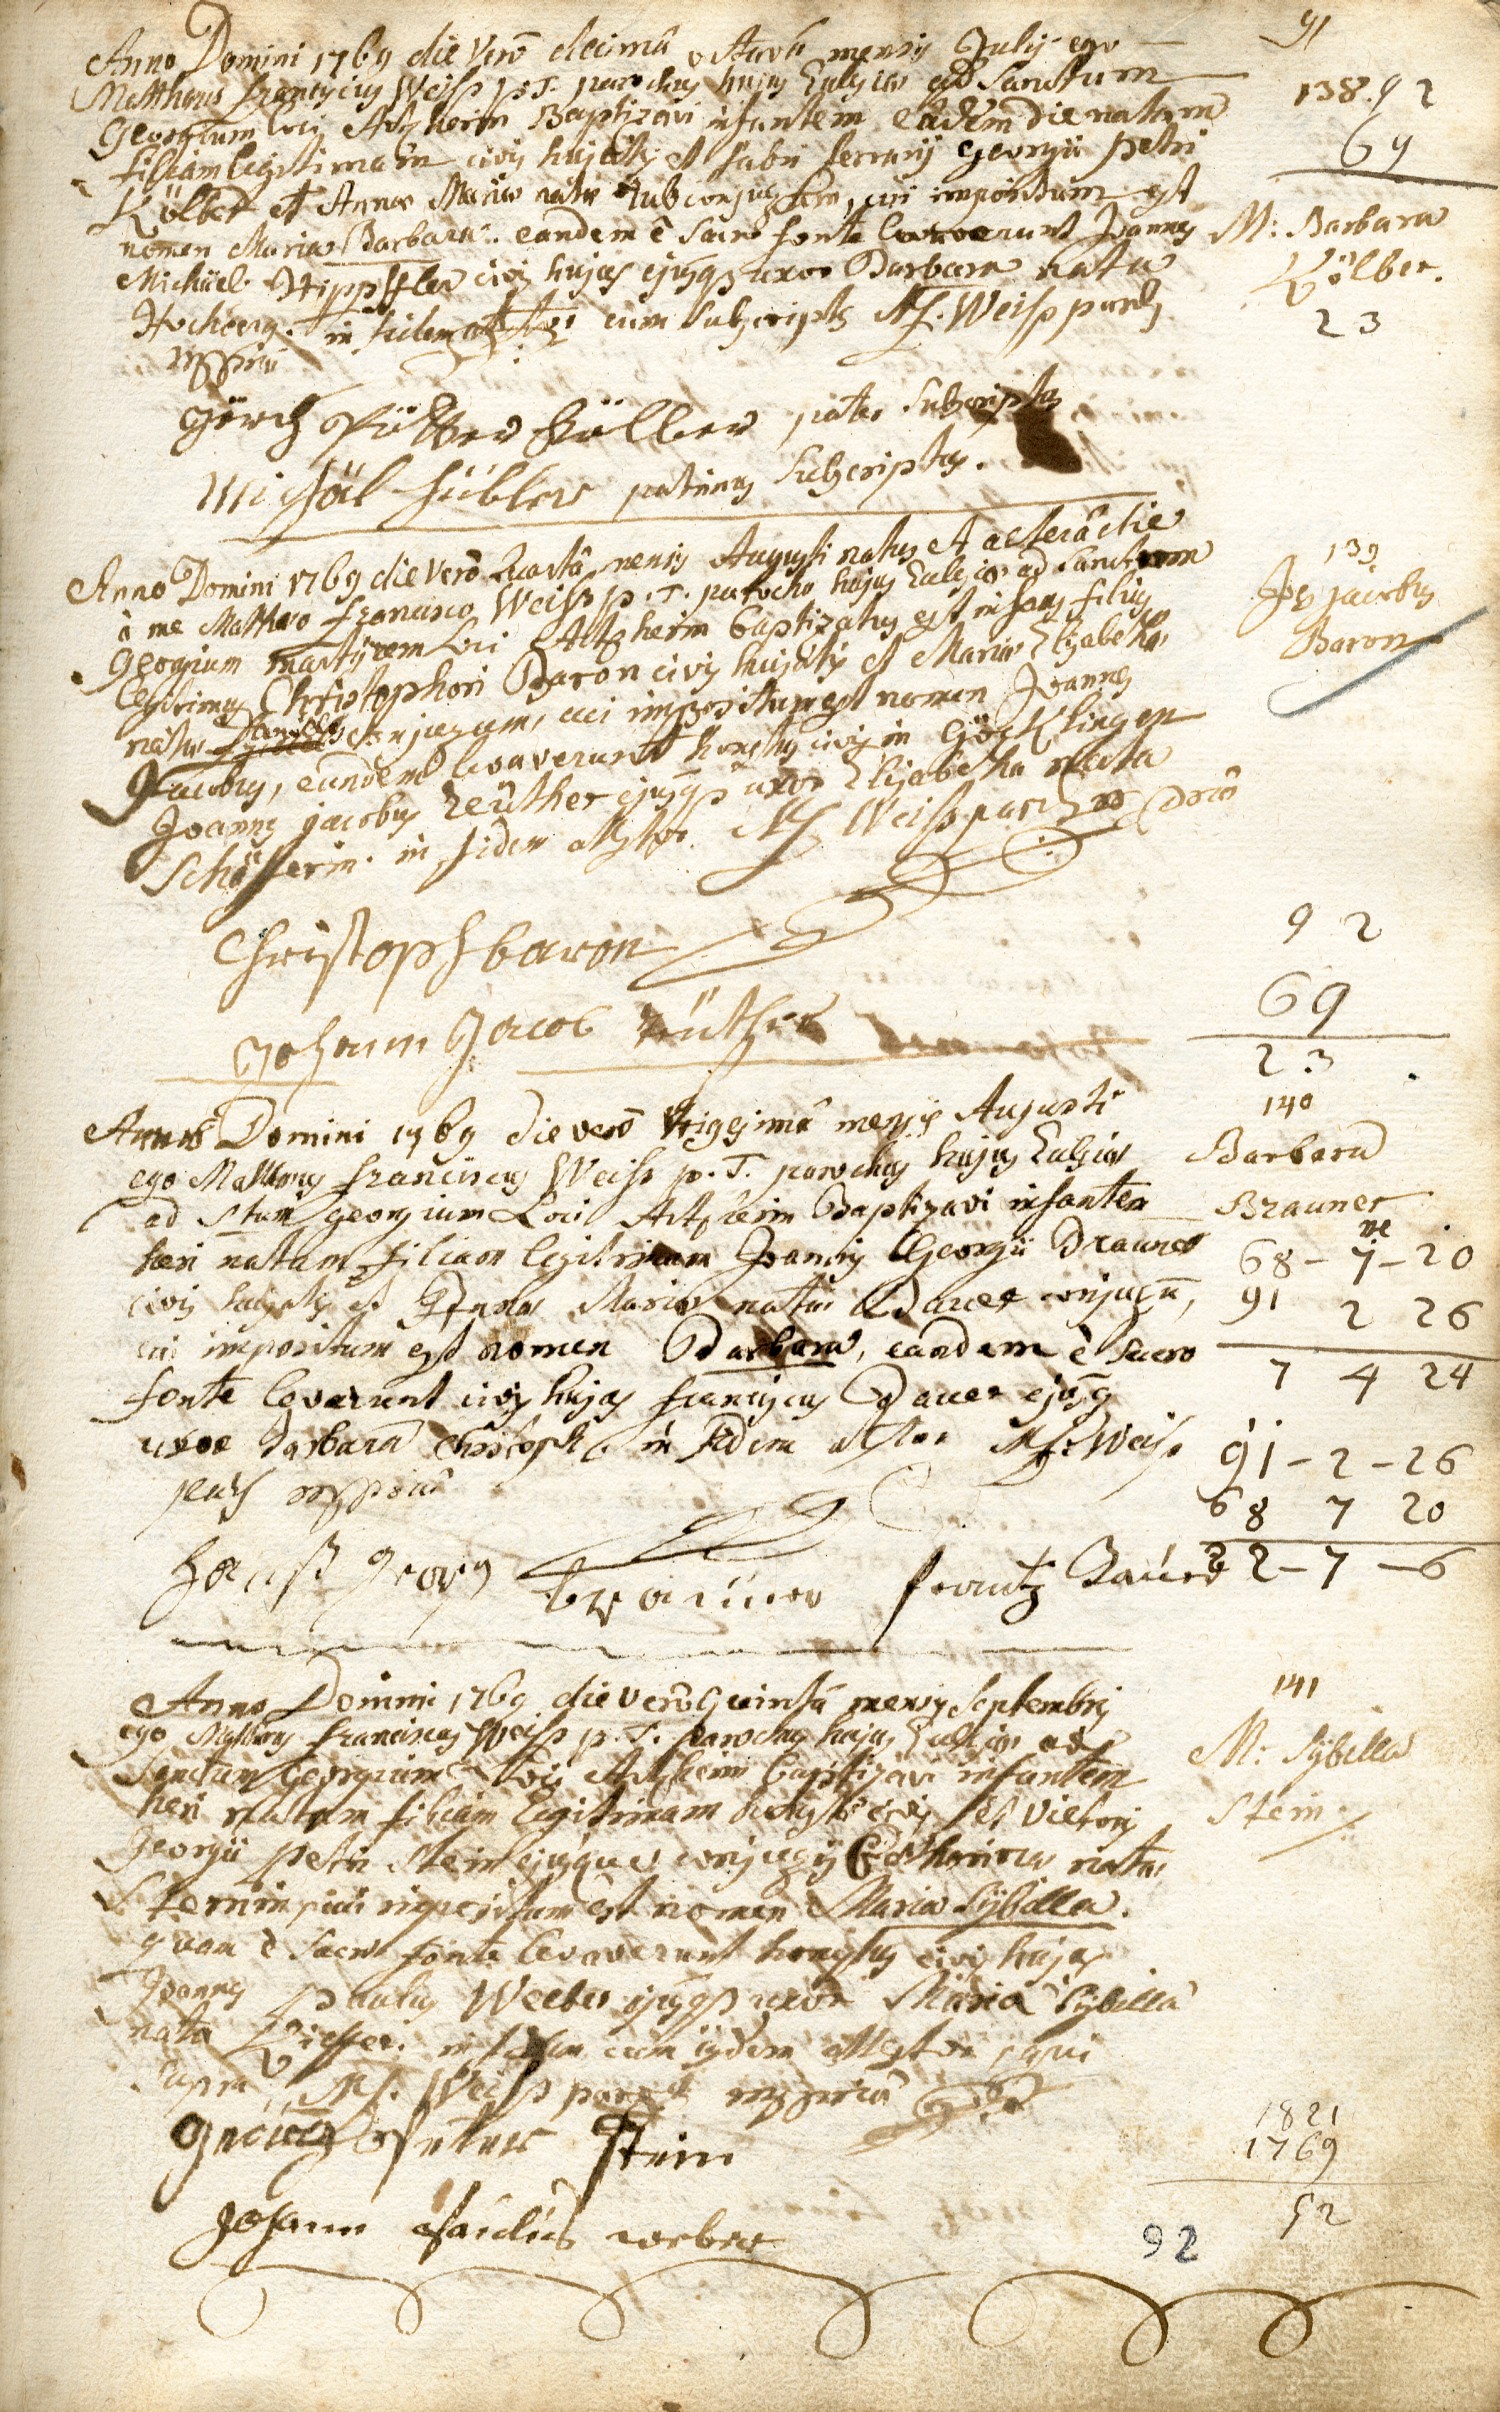 91
Anno Domini 1769 die verò decimâ octavâ mensis July ego
Matthaeus Franciscus Weiss p.T. parochus hujus Ecclesiae ad Sanctum
Georgium loci Artzheim Baptizavi infantem eâdem die natam
filiam legitimam civis hujatis et fabri ferrarij Georgii Petri
Kölber et Annae Mariae natae conjugum, cui impositum est
nomen Maria Barbara. eandem è sacro fonte levaverunt Joannes
Michäel civis hujas ejusq3 uxor Barbara nata
in fidem cum subscriptis Mf. Weiss parch
mppriâ
138. 92
69
M: Barbara
Kölber.
23
görch Kölber pater subscriptus
Michäl patrinus subscriptus.
Anno Domini 1769 die verò mensis Augusti natus et die
à me Mattheo Francisco Weiss p. T. parocho hujus Ecclesiae ad Sanctum
Georgium martyrem loci Artzheim baptizatus est infans filius
legitimus Christophori Baron civis hujatis et Mariae Elisabethae
natae conjugum, cui impositum est nomen Joannes
Jacobus, eundem levaverunt honestus civis in Göcklingen
Joannes jacobus reüther ejusq3 uxor Elisabetha nata
Schäfferin. in fidem attestor. Mf Weiss parch
139
Jos jacobus
Baron
Christoph baron
Johann Jacob rüther
92
69
23
Anno Domini 1769 die verò vigesimâ mensis Augusti
ego Matthaeus Franciscus Weiss p. T. parochus hujus Ecclesiae
ad Stum georgium loci Artzheim Baptizavi infantem
heri natam filiam legitimam Joannis Georgii Brauner
civis hujatis et Annae Mariae natae Bauer conjugum,
cui impositum est nomen Barbara, eandem è sacro
fonte levarunt civis hujas franciscus Bauer ejusq
uxor Barbara in fidem attestor Mf: Weiss
parch mppriâ
140
Barbara
Brauner
ne
68 - 7 - 20
91 2 26
7 4 24
91 - 2 - 26
68 7 20
22 - 7 - 6
Hanss georg brauner frantz Bauer
Anno Domini 1769 die verò Quintâ mensis Septembris
ego Matthaeus franciscus Weiss p. T. parochus hujus Ecclesiae ad
Sanctum Georgium loci Artzheim baptizavi infantem
heri natam filiam legitimam honesti civis et Vietoris
Georgii Petri Stein ejusque conjugis Catharinae natae
impositum est nomen Maria Sÿbilla.
quam è sacro fonte levaverunt honestus civis hujas
Joannes paulus Weeber ejusq3 uxor Maria Sÿbilla
nata in fidem cum ijsdem attestor qui
supra, Mf. Weiss parch mppriâ
141
M: Sÿbilla
Stein
Stein
Johann Paulus weber
1821
1769
52
92